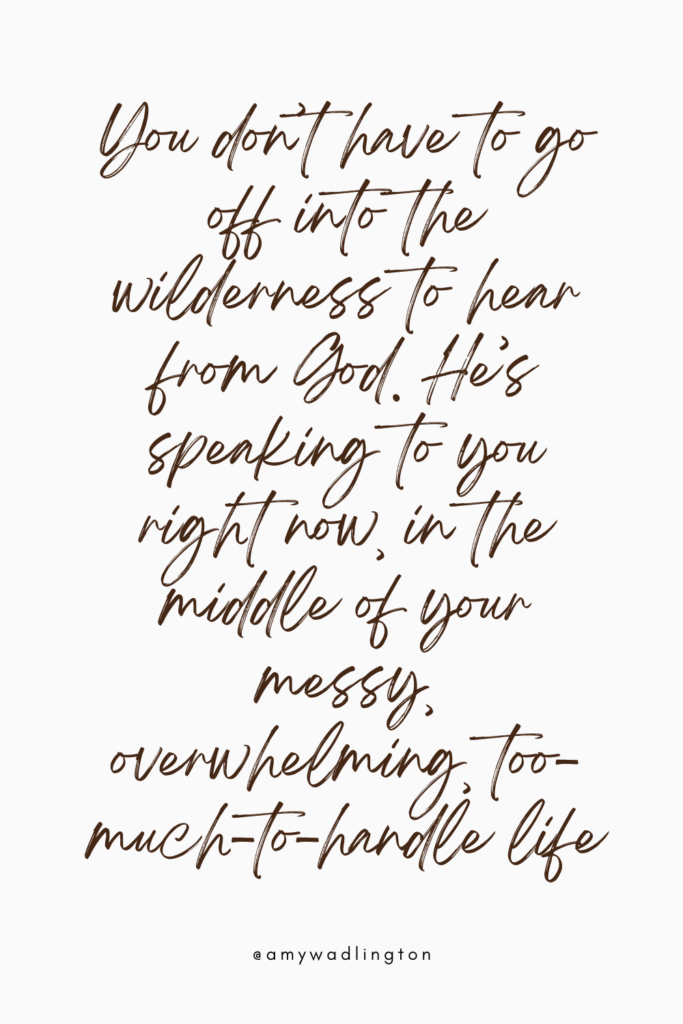 You don't have to go
off into the
wilderness to hear
from God. He's
speaking to you
right now, in the
middle of your
messy,
overwhelming, too-
much-to-handle life
@amywadlington